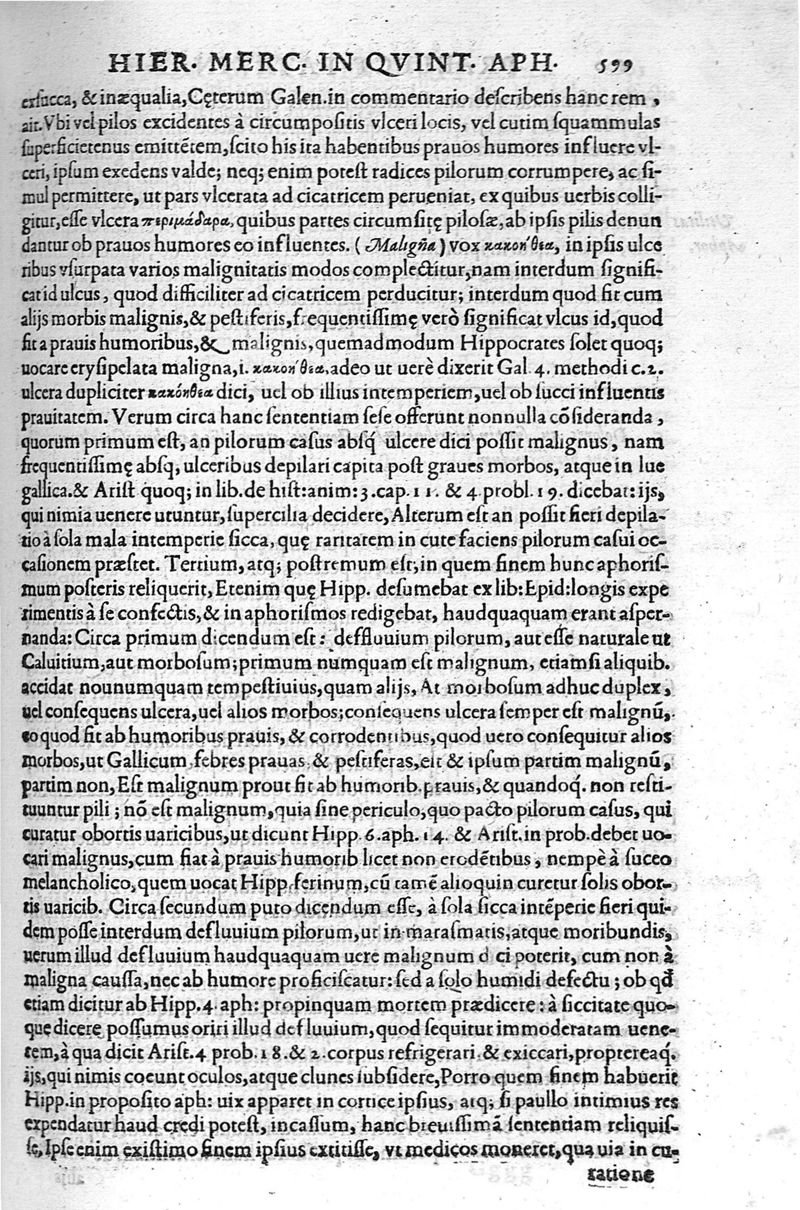 HIER. MERC. IN QVINT. APH. 599
exsucca, & inæqualia, Cęterum Galen. in commentario describens hanc rem,
ait. Vbi vel pilos excidentes à circumpositis vlceri locis, vel cutim squammulas
superficietenus emittētem, scito his ita habentibus prauos humores influere vl-
ceri, ipsum exedens valde; neq; enim potest radices pilorum corrumpere, ac si-
mul permittere, ut pars vlcerata ad cicatricem perueniat, ex quibus uerbis colli-
gitur, esse vlcera περιμάδαρα, quibus partes circumsitę pilosæ, ab ipsis pilis denun
dantur ob prauos humores eo influentes. (Maligña) vox κακοήθεα, in ipsis ulce
ribus vsurpata varios malignitatis modos complectitur, nam interdum signifi-
cat id ulcus, quod difficiliter ad cicatricem perducitur; interdum quod fit cum
alijs morbis malignis, & pestiferis, frequentissimę verò significat vlcus id, quod
fit a prauis humoribus, & malignis, quemadmodum Hippocrates solet quoq;
uocare erysipelata maligna, i. κακοήθεα, adeo ut uerè dixerit Gal. 4. methodi c. 2.
ulcera dupliciter κακόηθεα dici, uel ob illius intemperiem, uel ob succi influentis
prauitatem. Verum circa hanc sententiam sese offerunt nonnulla cōsideranda,
quorum primum est, an pilorum casus absq́ ulcere dici possit malignus, nam
frequentissimę absq, ulceribus depilari capita post graues morbos, atque in lue
gallica. & Arist quoq; in lib. de hist: anim: 3. cap. 11. & 4. probl. 19. dicebat: ijs,
qui nimia uenere utuntur, supercilia decidere, Alterum est an possit fieri depila-
tio à sola mala intemperie sicca, quę raritatem in cute faciens pilorum casui oc-
casionem præstet. Tertium, atq; postremum est, in quem finem hunc aphoris-
mum posteris reliquerit, Etenim quę Hipp. desumebat ex lib: Epid: longis expe
rimentis à se confectis, & in aphorismos redigebat, haudquaquam erant asper-
nanda: Circa primum dicendum est: deffluuium pilorum, aut esse naturale ut
Caluitium, aut morbosum; primum numquam est malignum, etiamsi aliquib.
accidat nounumquam tempestiuius, quam alijs, At morbosum adhuc duplex,
uel consequens ulcera, uel alios morbos; consequens ulcera semper est malignū,
eo quod fit ab humoribus prauis, & corrodentibus, quod uero consequitur alios
morbos, ut Gallicum febres prauas & pestiferas, eit & ipsum partim malignū,
partim non, Est malignum prout fit ab humorib. prauis, & quandoq́. non resti-
tuuntur pili; nō est malignum, quia sine periculo, quo pacto pilorum casus, qui
curatur obortis uaricibus, ut dicunt Hipp. 6. aph. 14. & Arist. in prob. debet uo-
cari malignus, cum fiat à prauis humorib licet non erodētibus, nempè à succo
melancholico, quem uocat Hipp. ferinum, cū tamē alioquin curetur solis obor-
tis uaricib. Circa secundum puto dicendum esse, à sola sicca intēperie fieri qui-
dem posse interdum defluuium pilorum, ut in marasmatis, atque moribundis,
uerum illud defluuium haudquaquam uere malignum d ci poterit, cum non à
maligna caussa, nec ab humore proficiscatur: sed a solo humidi defectu; ob qđ
etiam dicitur ab Hipp. 4. aph: propinquam mortem prædicere: à siccitate quo-
que dicere possumus oriri illud defluuium, quod sequitur immoderatam uene-
rem, à qua dicit Arist. 4 prob. 18. & 2. corpus refrigerari & exiccari, proptereaq́.
ijs, qui nimis coeunt oculos, atque clunes subsidere, Porro quem finem habuerit
Hipp. in proposito aph: uix apparet in cortice ipsius, atq; si paullo intimius res
expendatur haud credi potest, incassum, hanc breuissimā sententiam reliquis-
se, Ipse enim existimo finem ipsius extitisse, vt medicos moneret, qua uia in cu-
ratione